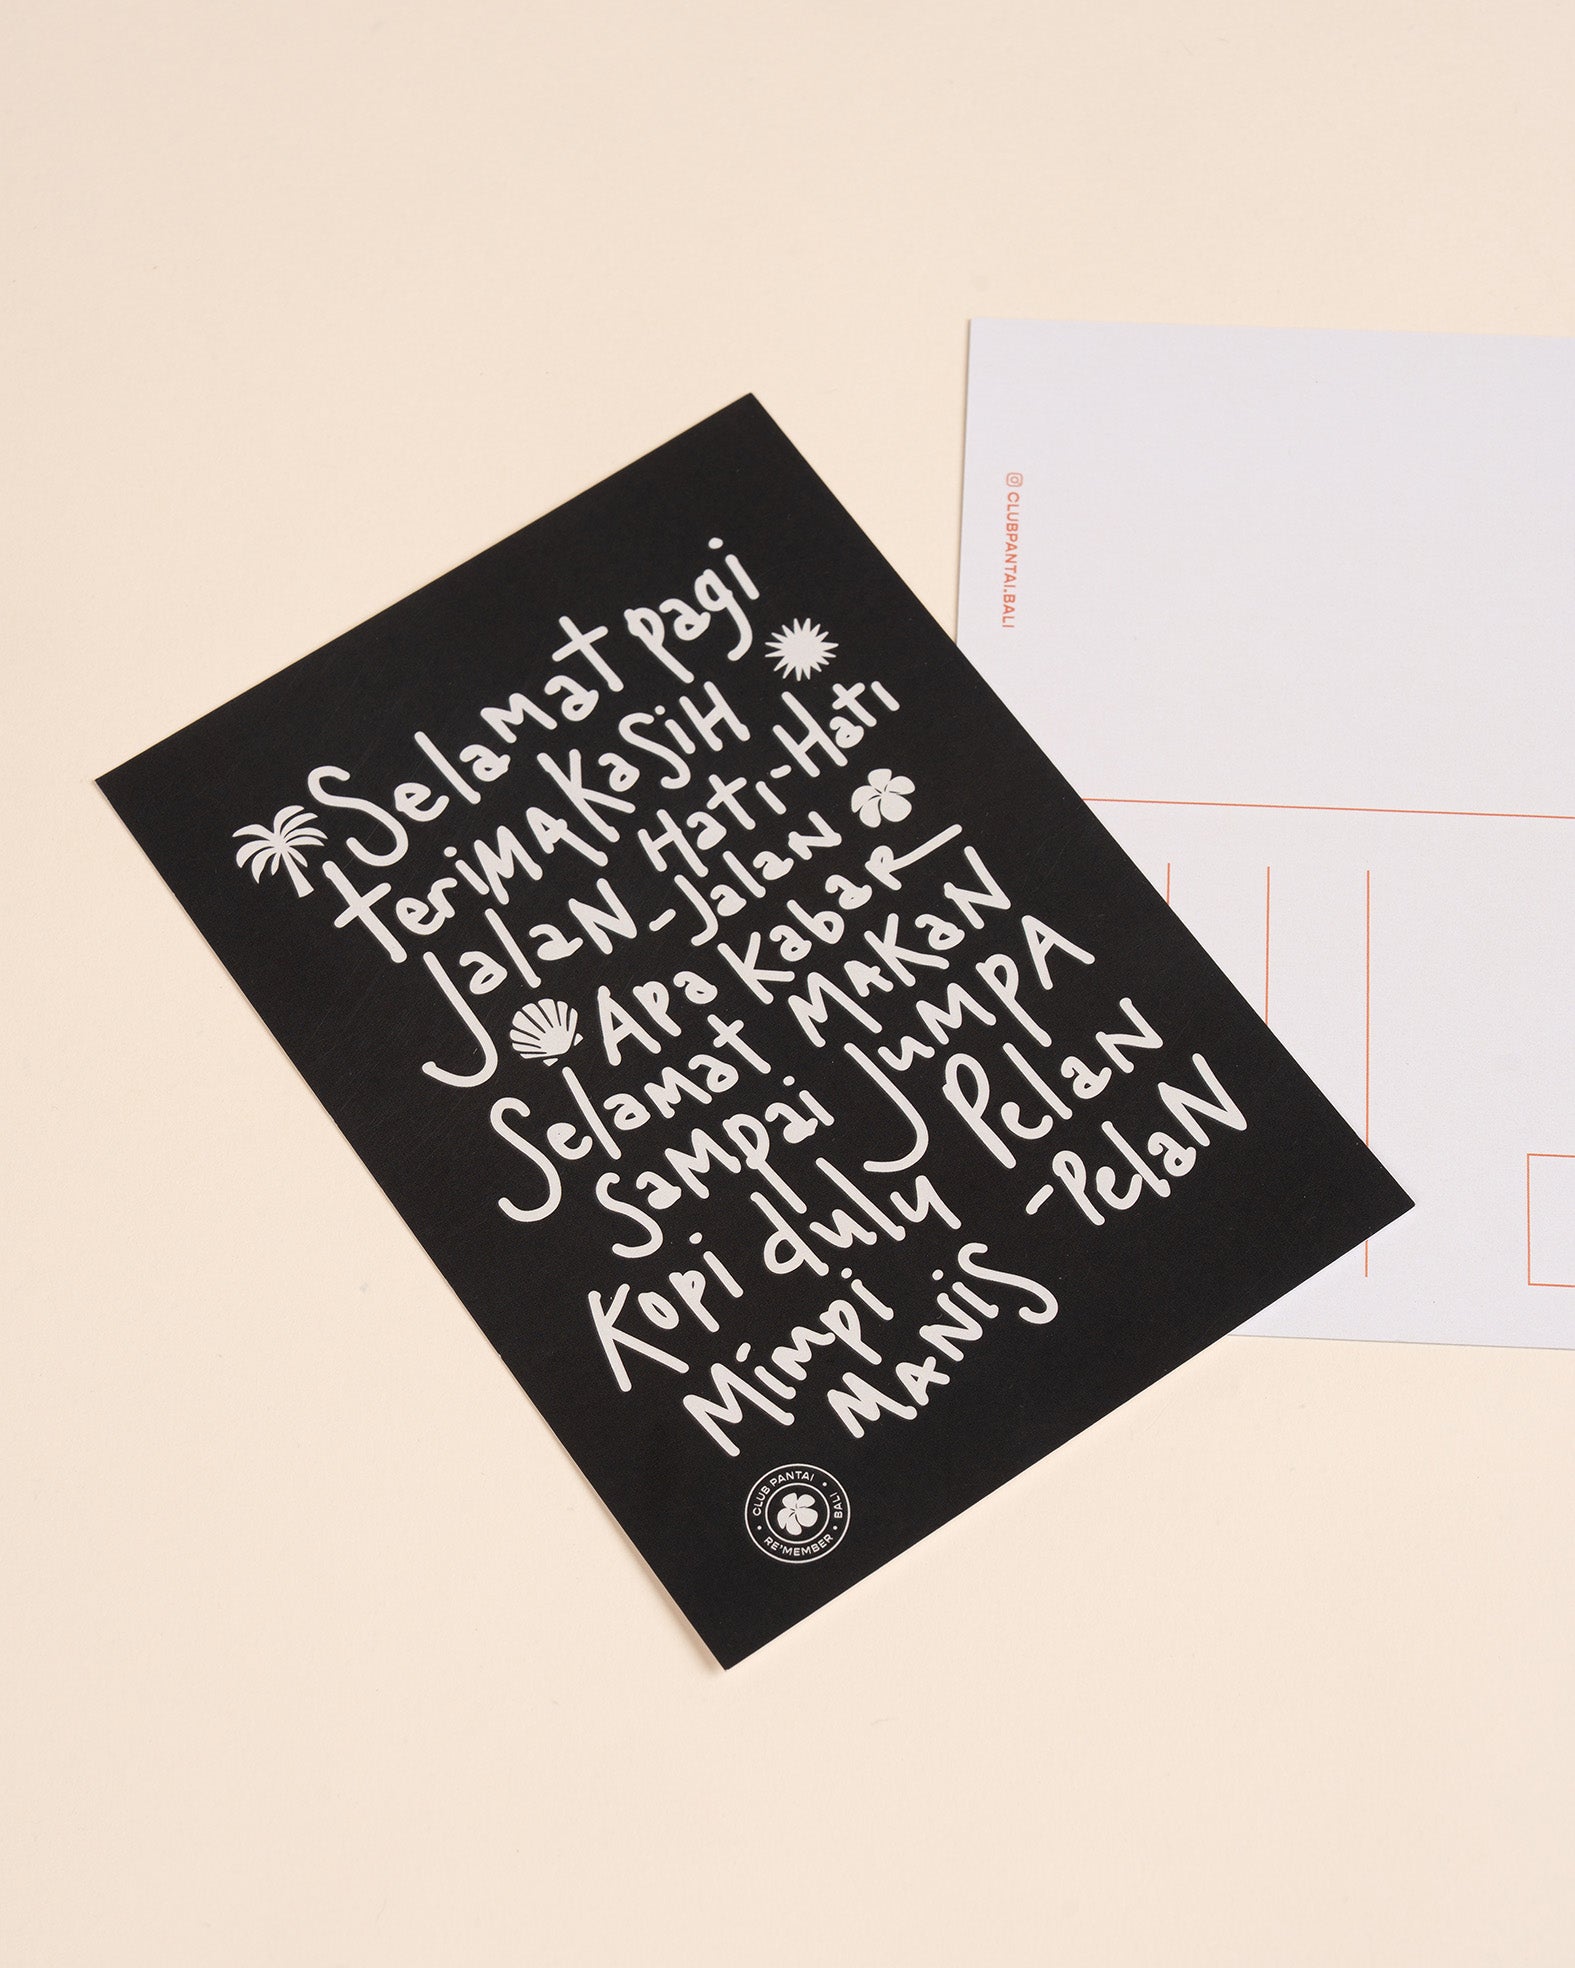 Selamat pagi
terimakasih
Hati-Hati
Jalan-Jalan
Apa Kabar
Selamat Makan
Sampai Jumpa
Kopi dulu
Pelan
-Pelan
Mimpi
Manis
CLUB PANTAI • BALI • RE'MEMBER •
CLUBPANTAI.BALI